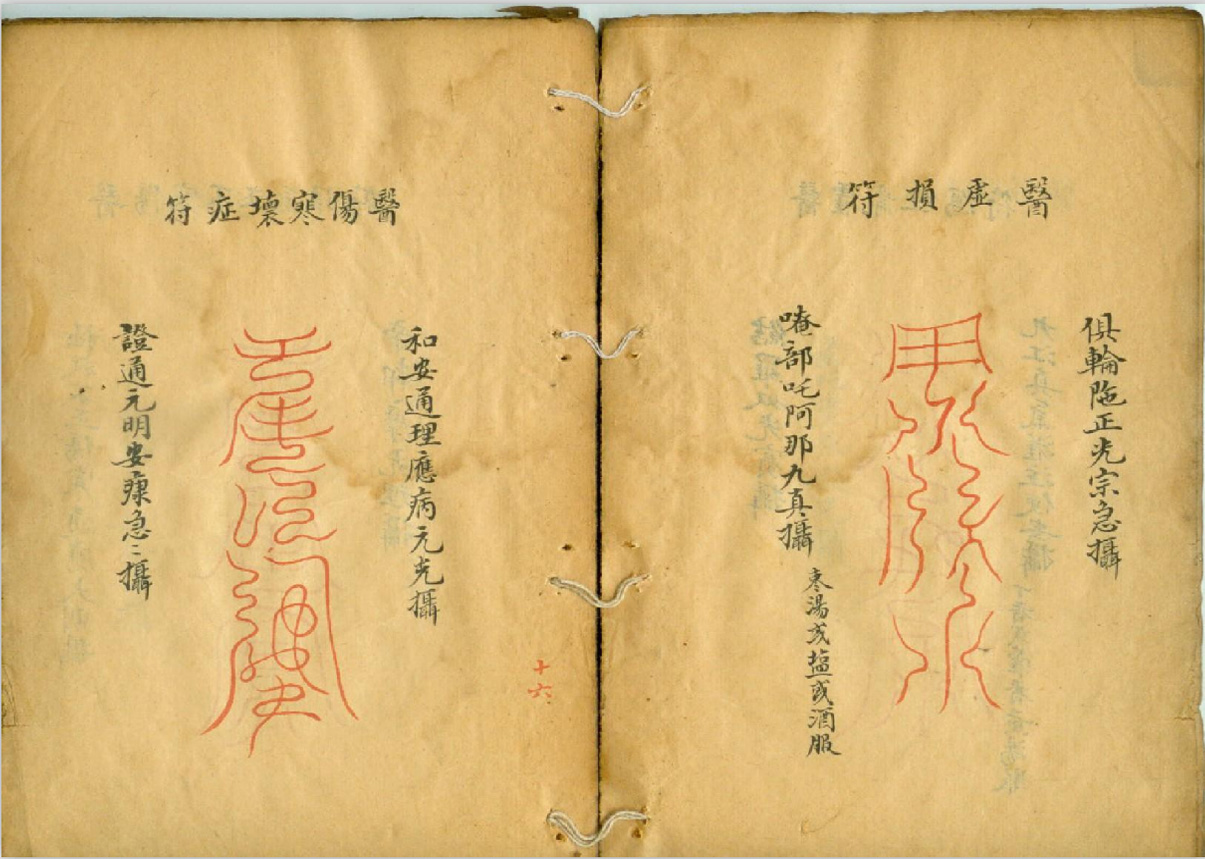 醫虛損符
俱輪陁正光宗急攝
唵部吒阿那九真攝
棗湯或塩或酒服
醫傷寒壞症符
和安通理應病元光攝
證通元明安痳急〻攝
十六